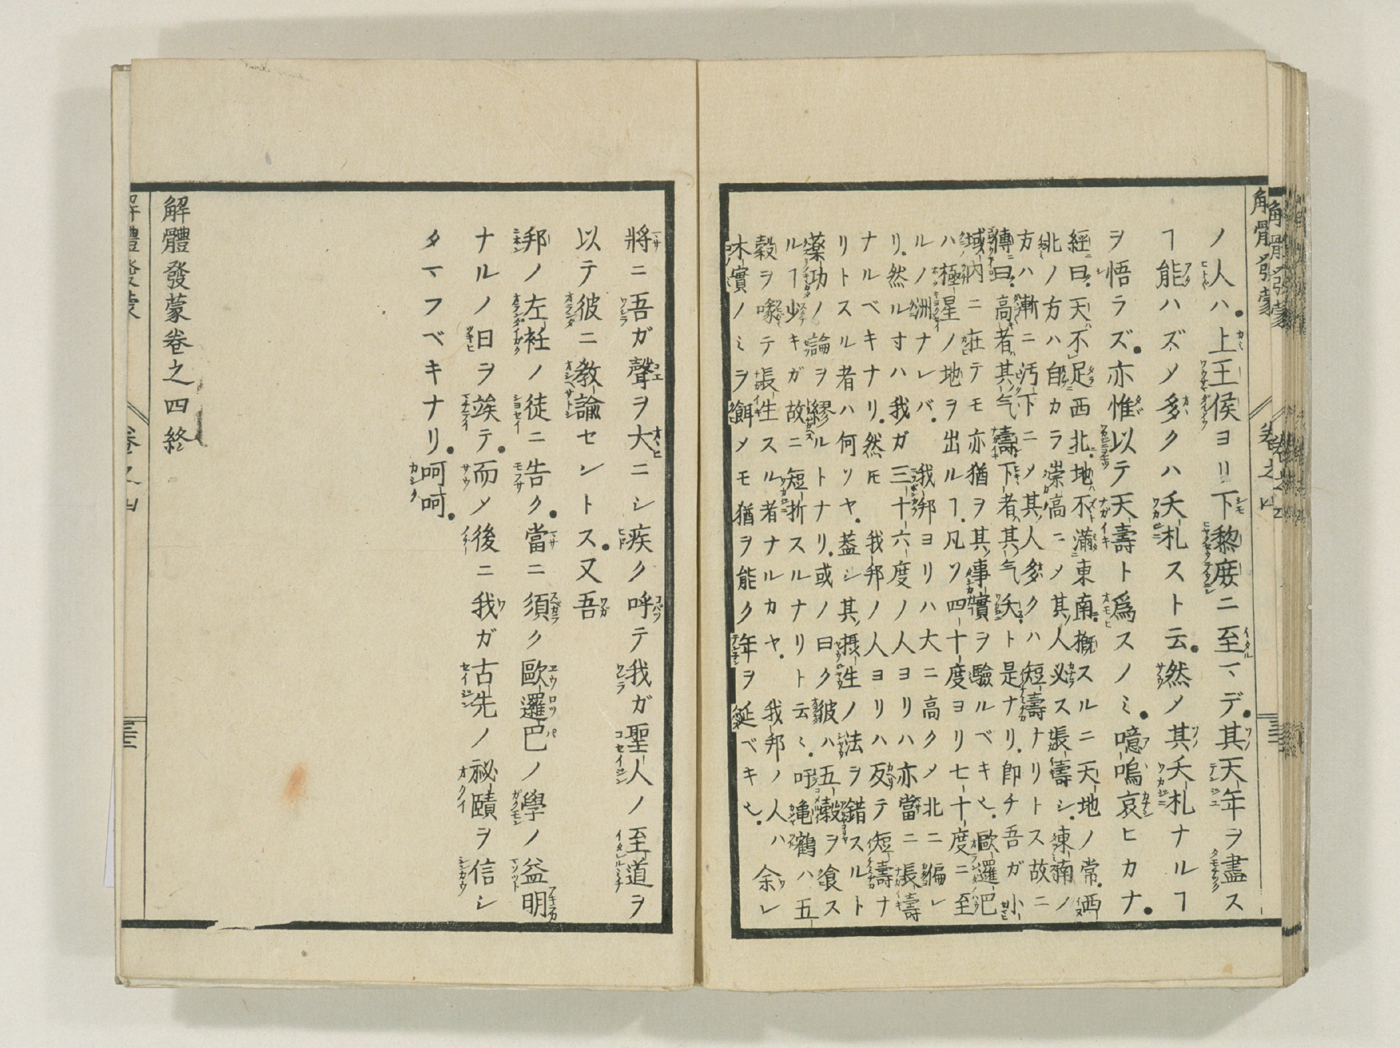 ノ人ハ上王侯ヨリ下黎庻ニ至マデ其天年ヲ盡ス
ヿ能ハズメ多クハ夭札スト云然メ其夭札ナルヿ
ヲ悟ラズ亦惟以テ天壽ト爲スノミ噫嗚哀ヒカナ
經曰天不足西北地不滿東南擬スルニ天地ノ常西
北ノ方ハ自カラ崇高ニメ其人必ス張壽シ東南ノ
方ハ漸ニ汚下ニメ其人多クハ短壽ナリトス故ニ
傳曰高者其气壽下者其气夭ト是ナリ即チ吾ガ小
域内ニ在テモ亦猶ヲ其事實ヲ驗ルベキ也歐邏巴
ハ極星ノ地ヲ出ルヿ凡ソ四十度ヨリ七十度ニ至
ルノ洲ナレバ我邦ヨリハ大ニ高クメ北ニ偏レ
リ然ルヰハ我ガ三十六度ノ人ヨリハ亦當ニ長壽
ナルベキナリ然𪜈我邦ノ人ヨリハ反テ短壽ナ
リトスル者ハ何ソヤ蓋シ其摂生ノ法ヲ錯スルト
藥功ノ論ヲ繆ルトナリ或ノ曰ク彼ハ五穀ヲ食ス
ルヿ少キガ故ニ短折スルナリト云ミ吁亀鶴ハ五
穀ヲ喙テ張生スル者ナルカヤ我邦ノ人ハ余レ
木實ノミヲ餌メモ猶ヲ能ク年ヲ延ベキ也
將ニ吾ガ聲ヲ大ニシ疾ク呼テ我ガ聖人ノ至道ヲ
以テ彼ニ教諭セントス又吾
邦ノ左衽ノ徒ニ告ク當ニ須ク歐邏巴ノ學ノ益明
ナルノ日ヲ竢テ而メ後ニ我ガ古先ノ祕賾ヲ信シ
タマフベキナリ呵呵
解體發蒙卷之四終